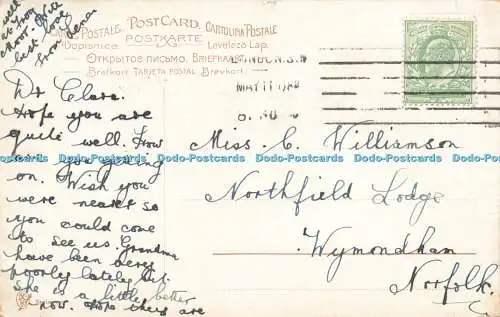 well
at from
Moor. With
best love
from Lena
CARTE POSTALE. POST CARD. CARTOLINA POSTALE
Dopisnice. POSTKARTE Levelező Lap.
ОТКРЫТОЕ ПИСЬМО. BRIEFKAART
Brefkort TARJETA POSTAL Brevkort
LONDON. S.W
MAY 11
Dr Clara.
Hope you are
quite well. How
are you going
on. Wish you
were nearer so
you could come
to see us. Grandma
have been very
poorly lately but
she is a little better
now. Hope they are
Miss. C. Williamson
Northfield Lodge
Wymondham
Norfolk.
Dodo-Postcards Dodo-Postcards Dodo-Postcards Dodo-Postcards Dodo-Postcards